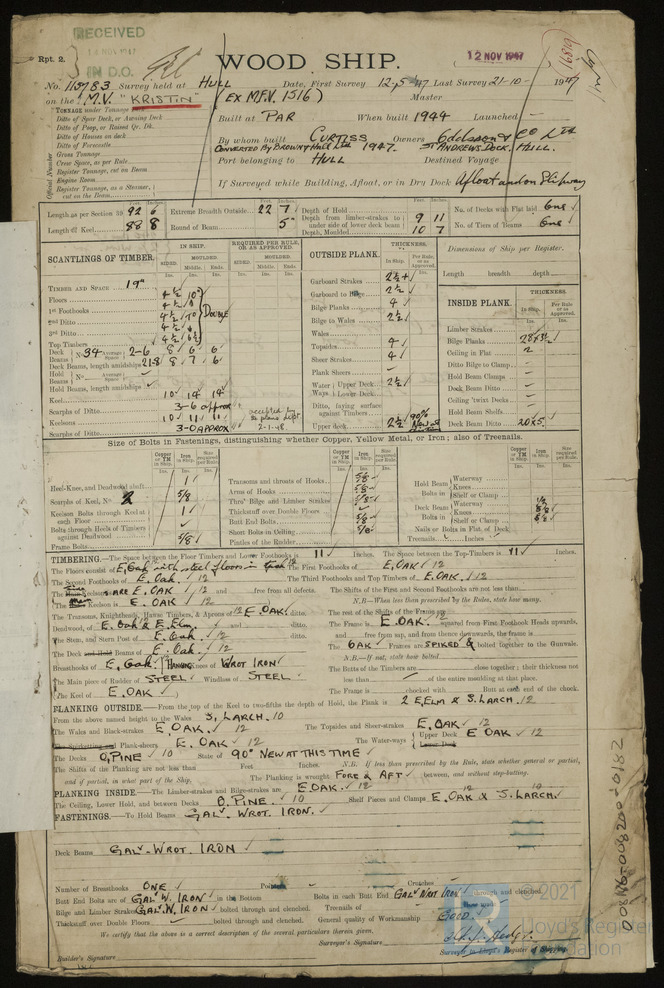 RECEIVED
14 NOV 1947
IN D.O.
Rpt. 2.
WOOD SHIP.
12 NOV 1947
No. 113783 Survey held at HULL Date, First Survey 12-5-47 Last Survey 21-10- 1947
on the M.V. "KRISTIN" (EX M.F.V. 1516) Master
TONNAGE under Tonnage Deck
Ditto of Spar Deck, or Awning Deck
Ditto of Poop, or Raised Qr. Dk.
Ditto of Houses on deck
Ditto of Forecastle
Gross Tonnage
Crew Space, as per Rule
Register Tonnage, cut on Beam
Engine Room
Register Tonnage, as a Steamer, cut on the Beam
Official Number
Built at PAR When built 1944 Launched
By whom built CURTISS Owners & Co Ltd
CONVERTED BY BROWN & Ltd 1947. ST ANDREWS DOCK, HULL.
Port belonging to HULL Destined Voyage
If Surveyed while Building, Afloat, or in Dry Dock Afloat and on Slipway
Length as per Section 39 92 6 Extreme Breadth Outside 22 7 Depth of Hold No. of Decks with Flat laid One
Length of Keel 88 8 Round of Beam 5 Depth from limber-strakes to under side of lower deck beams 9 11 No. of Tiers of Beams One
Depth, Moulded 10 7
SCANTLINGS OF TIMBER.
IN SHIP. REQUIRED PER RULE, OR AS APPROVED.
SIDED. MOULDED. Middle. Ends.
TIMBER AND SPACE 19"
Floors
1st Foothooks
2nd Ditto
3rd Ditto
DOUBLE
Top Timbers
Deck Beams No 34 Average Space 2-6 8 6 6
Deck Beams, length amidships 21-8 8 7 6
Hold Beams No Average Space
Hold Beams, length amidships
Keel 10 14 14
Scarphs of Ditto 3-6 approx
Keelsons 10 11 11
Scarphs of Ditto 3-0 APPROX
accepted by plans dept 2-1-48
OUTSIDE PLANK.
THICKNESS. In Ship. Per Rule or as Approved
Garboard Strakes 2½
Garboard to Bilge 2½
Bilge Planks 4
Bilge to Wales 2½
Wales
Topsides 4
Sheer Strakes 4
Plank Sheers
Water Ways Upper Deck 2½
Lower Deck
Ditto, faying surface against Timbers
Upper deck 2½ 90% New at
Dimensions of Ship per Register.
Length breadth depth
INSIDE PLANK.
THICKNESS. In Ship Per Rule or as Approved
Limber Strakes
Bilge Planks
Ceiling in Flat 2
Ditto Bilge to Clamp
Hold Beam Clamps
Deck Beam Ditto
Ceiling 'twixt Decks
Hold Beam Shelfs
Deck Beam Ditto 20x5
Size of Bolts in Fastenings, distinguishing whether Copper, Yellow Metal, or Iron; also of Treenails.
Heel-Knee, and Deadwood abaft 1
Scarphs of Keel, No. 2 5/8
Keelson Bolts through Keel at each Floor 1
Bolts through Heels of Timbers against Deadwood 5/8
Frame Bolts
Transoms and throats of Hooks 5/8
Arms of Hooks 5/8
Thro' Bilge and Limber Strakes 5/8
Thickstuff over Double Floors
Butt End Bolts 5/8
Short Bolts in Ceiling 5/8
Pintles of the Rudder
Hold Beam Bolts in Waterway Knees Shelf or Clamp
Deck Beam Bolts in Waterway Knees Shelf or Clamp
Nails or Bolts in Flat of Deck
Treenails Inches
TIMBERING.—The Space between the Floor Timbers and Lower Foothooks is 11 Inches. The Space between the Top-Timbers is 11 Inches.
The Floors consist of E. Oak with steel floors in The First Foothooks of E. OAK 12
The Second Foothooks of E. Oak. 12 The Third Foothooks and Top Timbers of E. OAK. 12
Keelsons ARE E. OAK 12 and free from all defects. The Shifts of the First and Second Foothooks are not less than
Keelson is E. OAK 12 N.B.—When less than prescribed by the Rules, state how many.
The Transoms, Knightheads, Hawse Timbers, & Aprons of E. OAK. ditto. The rest of the Shifts of the Frame are
Deadwood, of E. Oak & E. Elm. and ditto. The Frame is E. OAK. squared from First Foothook Heads upwards,
The Stem, and Stern Post of E. Oak 12 ditto. and free from sap, and from thence downwards, the frame is
The Deck and Hold Beams of E. Oak. 12 The OAK Frames are SPIKED & bolted together to the Gunwale.
Breasthooks of E. Oak Hanging Knees of WROT IRON N.B.—If not, state how bolted
The Main piece of Rudder STEEL Windlass of STEEL The Butts of the Timbers are close together; their thickness not less than of the entire moulding at that place.
(The Keel of E. OAK) The Frame is chocked with Butt at each end of the chock.
PLANKING OUTSIDE.—From the top of the Keel to two-fifths the depth of Hold, the Plank is 2 E. ELM & S. LARCH. 12
From the above named height to the Wales S. LARCH. 10
The Wales and Black-strakes E. OAK. 12 The Topsides and Sheer-strakes E. OAK 12
The Spirketting and Plank-sheers E. OAK 12 The Water-ways Upper Deck E OAK 12
Lower Deck
The Decks O. PINE 10 State of 90% NEW AT THIS TIME N.B. If less than prescribed by the Rule, state whether general or partial,
The Shifts of the Planking are not less than Feet Inches.
and if partial, in what part of the Ship, The Planking is wrought FORE & AFT between, and without step-butting.
PLANKING INSIDE.—The Limber-strakes and Bilge-strakes are E. OAK. 12
The Ceiling, Lower Hold, and between Decks O. PINE. 10 Shelf Pieces and Clamps E. OAK & S. LARCH.
FASTENINGS.—To Hold Beams GALV. WROT. IRON.
Deck Beams GALV. WROT IRON
Number of Breasthooks ONE Pointers Crutches
Butt End Bolts are of GALV W. IRON in the Bottom Bolts in each Butt End GALV WROT IRON through and clenched.
Bilge and Limber Strakes GALV. W. IRON bolted through and clenched. Treenails of How made
Thickstuff over Double Floors bolted through and clenched. General quality of Workmanship GOOD.
We certify that the above is a correct description of the several particulars therein given.
Surveyor's Signature
Surveyor to Lloyd's Register of Shipping.
Builder's Signature
© 2021
Lloyd's Register
Foundation